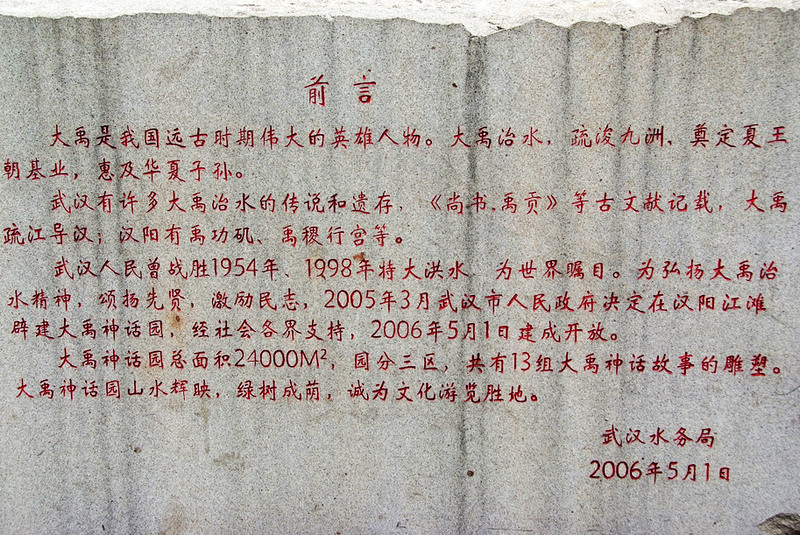 前言
大禹是我国远古时期伟大的英雄人物。大禹治水，疏浚九洲、奠定夏王
朝基业，惠及华夏子孙。
武汉有许多大禹治水的传说和遗存，《尚书.禹贡》等古文献记载，大禹
疏江导汉；汉阳有禹功矶、禹稷行宫等。
武汉人民曾战胜1954年、1998年特大洪水 为世界瞩目。为弘扬大禹治
水精神，颂扬先贤，激励民志，2005年3月武汉市人民政府决定在汉阳江滩
辟建大禹神话园，经社会各界支持，2006年5月1日建成开放。
大禹神话园总面积24000M²，园分三区，共有13组大禹神话故事的雕塑。
大禹神话园山水辉映，绿树成荫，诚为文化游览胜地。
武汉水务局
2006年5月1日